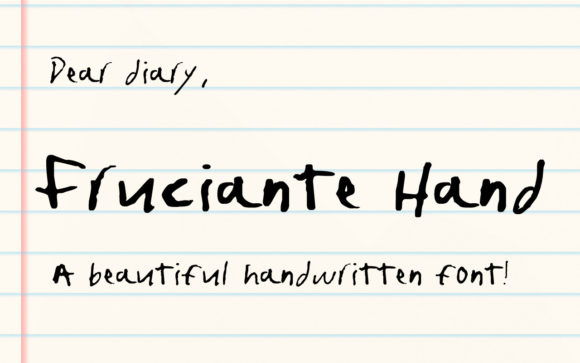 Dear diary,
Fruciante Hand
A beautiful handwritten font!